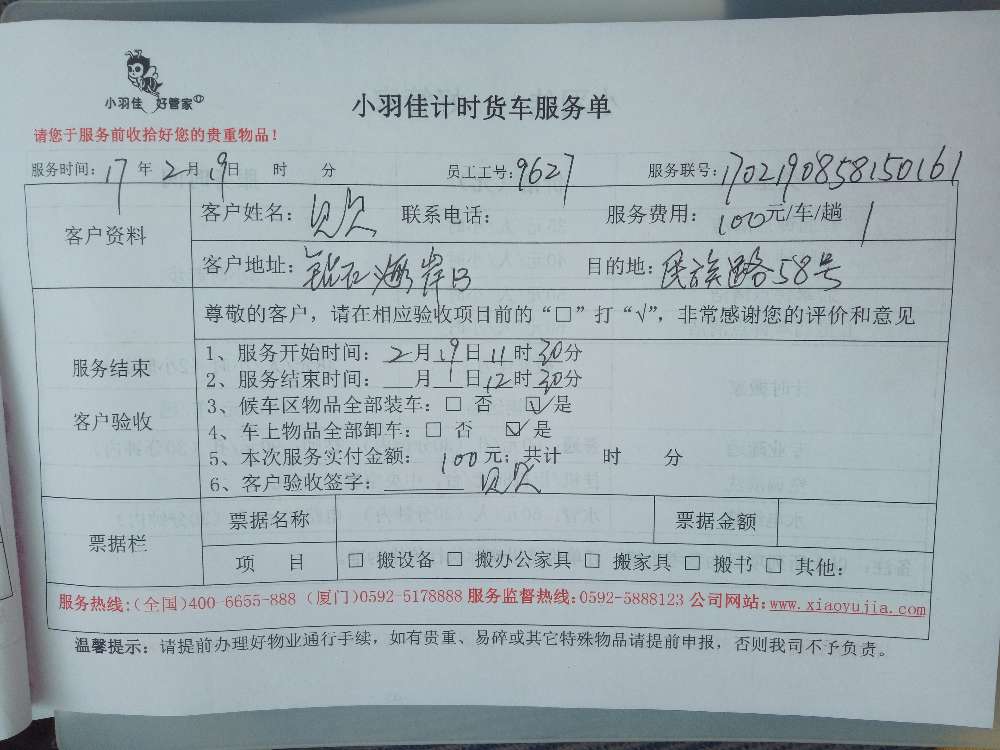 小羽佳 好管家
小羽佳计时货车服务单
请您于服务前收拾好您的贵重物品！
服务时间：17年2月19日 时 分 员工工号：9627 服务联号：1702190858150161
客户资料
客户姓名： 联系电话： 服务费用：100元/车/趟 1
客户地址：钻石海岸B 目的地：民族路58号
服务结束
客户验收
尊敬的客户，请在相应验收项目前的“□”打“√”，非常感谢您的评价和意见
1、服务开始时间：2月19日11时30分
2、服务结束时间：__月__日12时30分
3、候车区物品全部装车：□ 否 ☑ 是
4、车上物品全部卸车：□ 否 ☑ 是
5、本次服务实付金额：100元；共计 时 分
6、客户验收签字：
票据栏
票据名称 票据金额
项 目 □ 搬设备 □ 搬办公家具 □ 搬家具 □ 搬书 □ 其他：
服务热线：（全国）400-6655-888（厦门）0592-5178888 服务监督热线：0592-5888123 公司网站：www.xiaoyujia.com
温馨提示：请提前办理好物业通行手续，如有贵重、易碎或其它特殊物品请提前申报，否则我司不予负责。